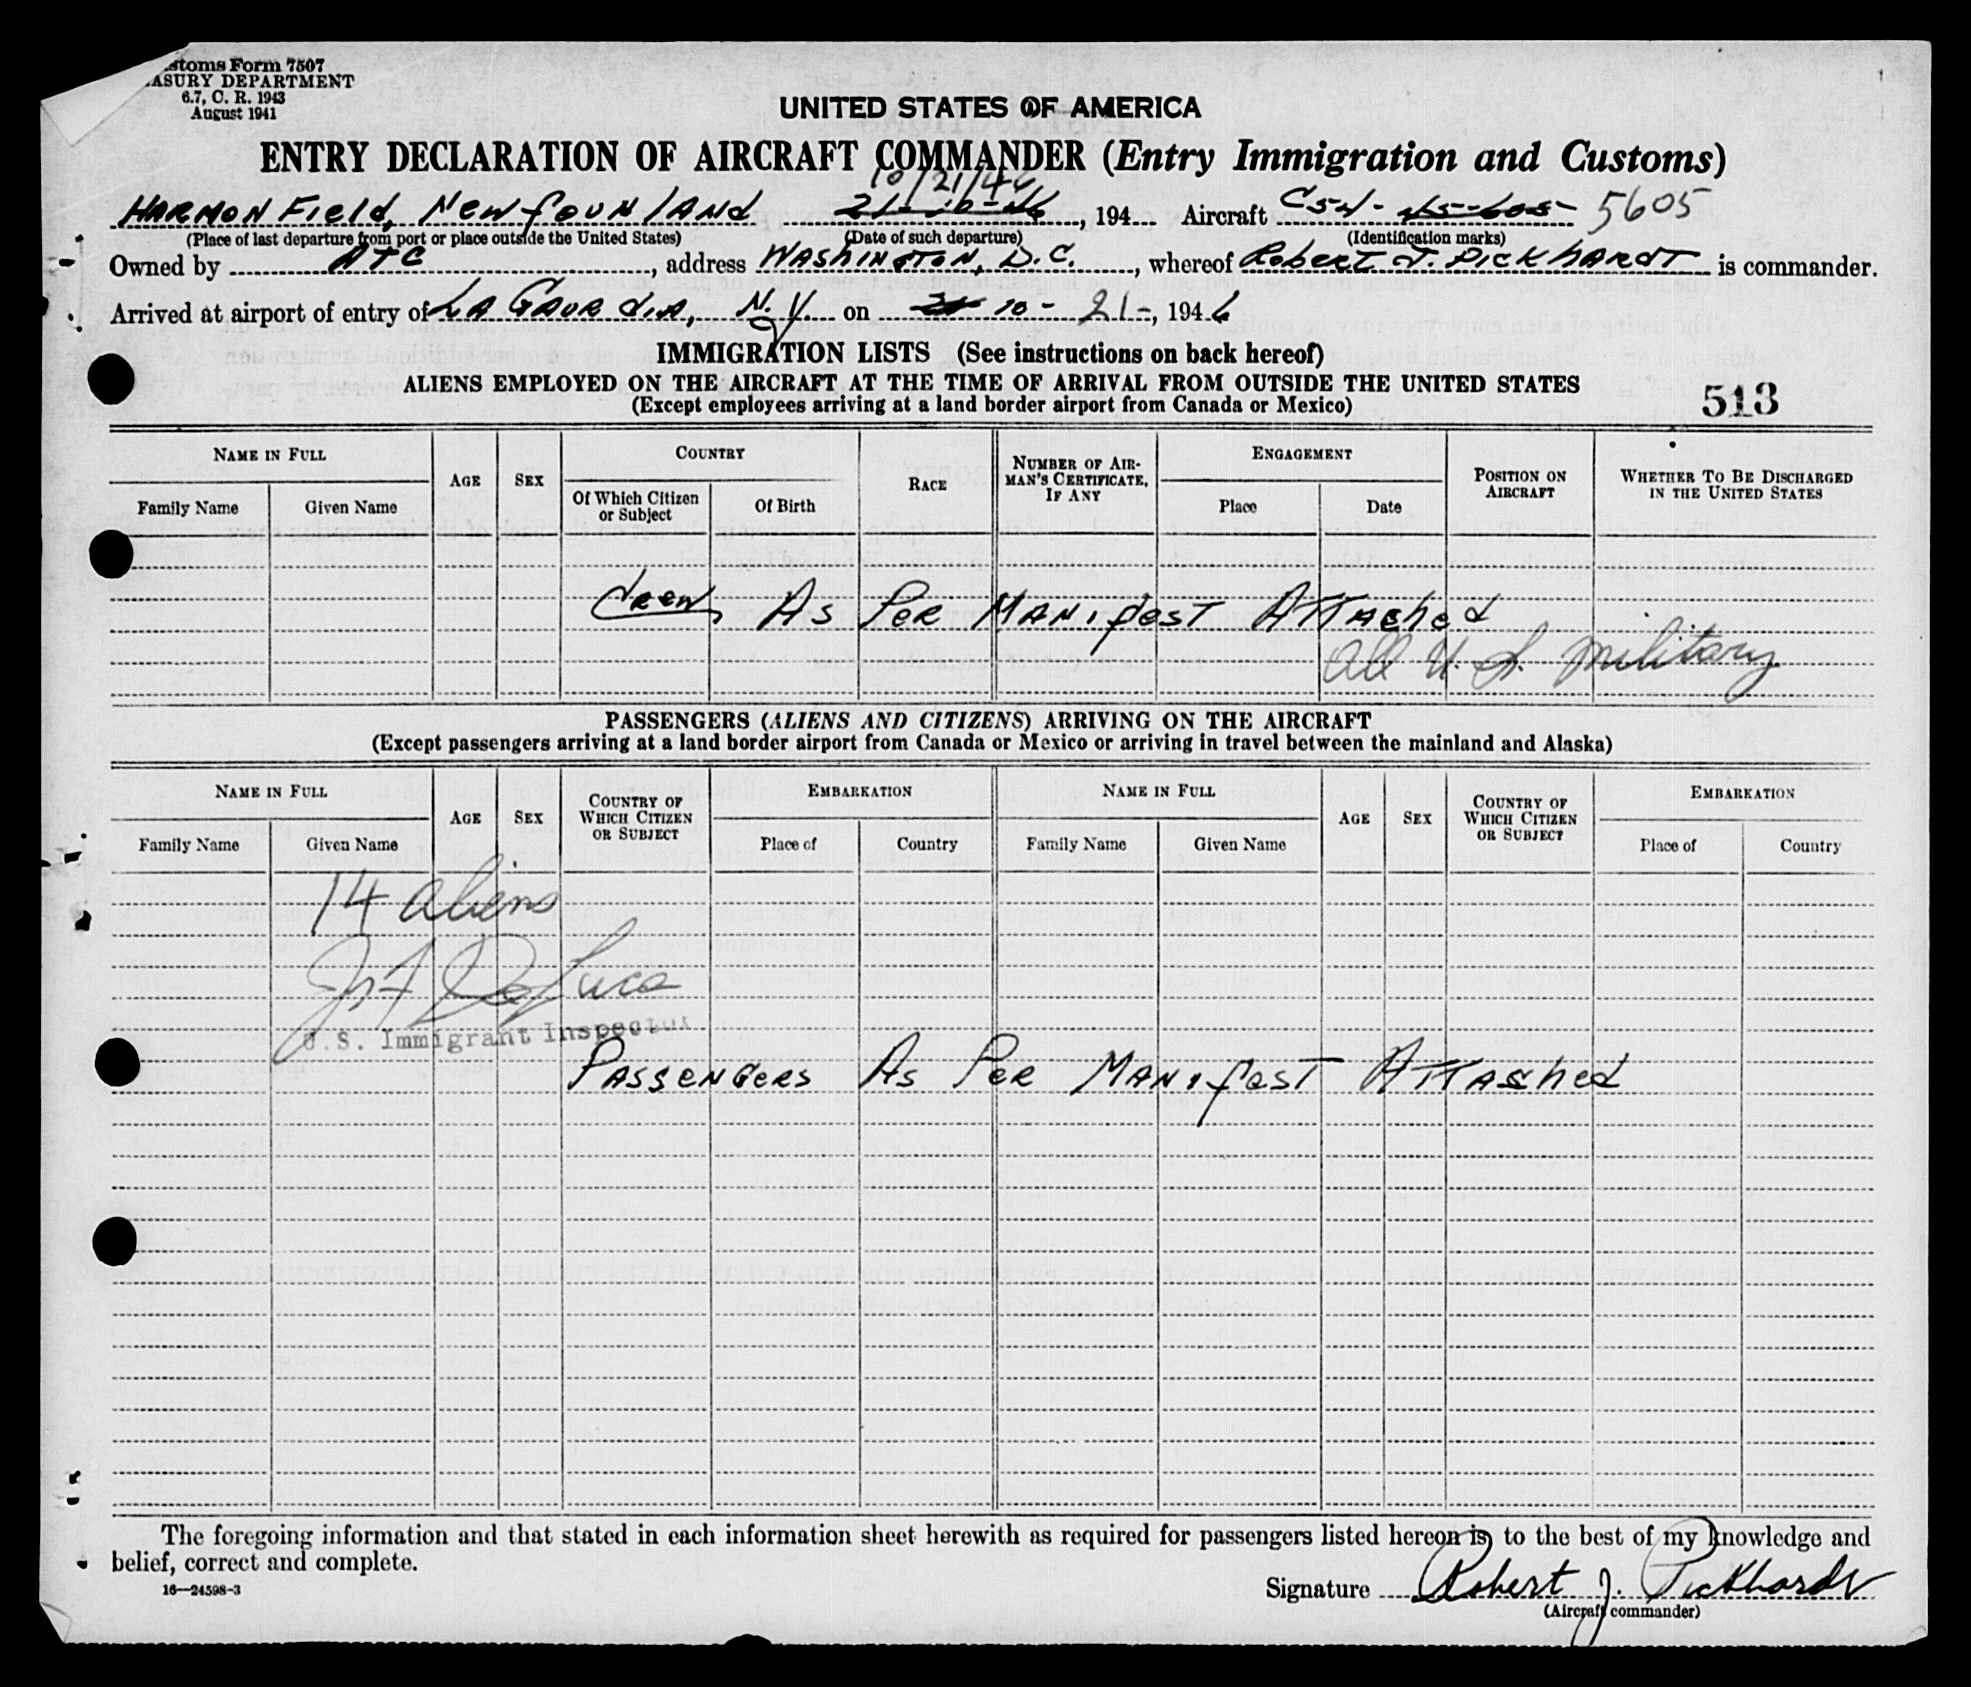 stoms Form 7507
ASURY DEPARTMENT
6.7, C. R. 1943
August 1941
UNITED STATES OF AMERICA
ENTRY DECLARATION OF AIRCRAFT COMMANDER (Entry Immigration and Customs)
10/21/46
HARMON Field, Newfoundland 21-10-46, 194 Aircraft C54- 45-605- 5605
(Place of last departure from port or place outside the United States) (Date of such departure) (Identification marks)
Owned by ATC, address Washington, D.C., whereof Robert J. Pickhardt is commander.
Arrived at airport of entry of La Gaurdia, N.Y. on 10-21-, 1946
IMMIGRATION LISTS (See instructions on back hereof)
ALIENS EMPLOYED ON THE AIRCRAFT AT THE TIME OF ARRIVAL FROM OUTSIDE THE UNITED STATES
(Except employees arriving at a land border airport from Canada or Mexico)
513
NAME IN FULL AGE SEX COUNTRY RACE NUMBER OF AIRMAN'S CERTIFICATE, IF ANY ENGAGEMENT POSITION ON AIRCRAFT WHETHER TO BE DISCHARGED IN THE UNITED STATES
Family Name Given Name Of Which Citizen or Subject Of Birth Place Date
Crew As Per Manifest Attached
All U.S. Military
PASSENGERS (ALIENS AND CITIZENS) ARRIVING ON THE AIRCRAFT
(Except passengers arriving at a land border airport from Canada or Mexico or arriving in travel between the mainland and Alaska)
NAME IN FULL AGE SEX COUNTRY OF WHICH CITIZEN OR SUBJECT EMBARKATION NAME IN FULL AGE SEX COUNTRY OF WHICH CITIZEN OR SUBJECT EMBARKATION
Family Name Given Name Place of Country Family Name Given Name Place of Country
14 aliens
DeLuca
U.S. Immigrant Inspector
Passengers As Per Manifest Attached
The foregoing information and that stated in each information sheet herewith as required for passengers listed hereon is, to the best of my knowledge and
belief, correct and complete.
16—24598-3
Signature Robert J. Pickhardt
(Aircraft commander)